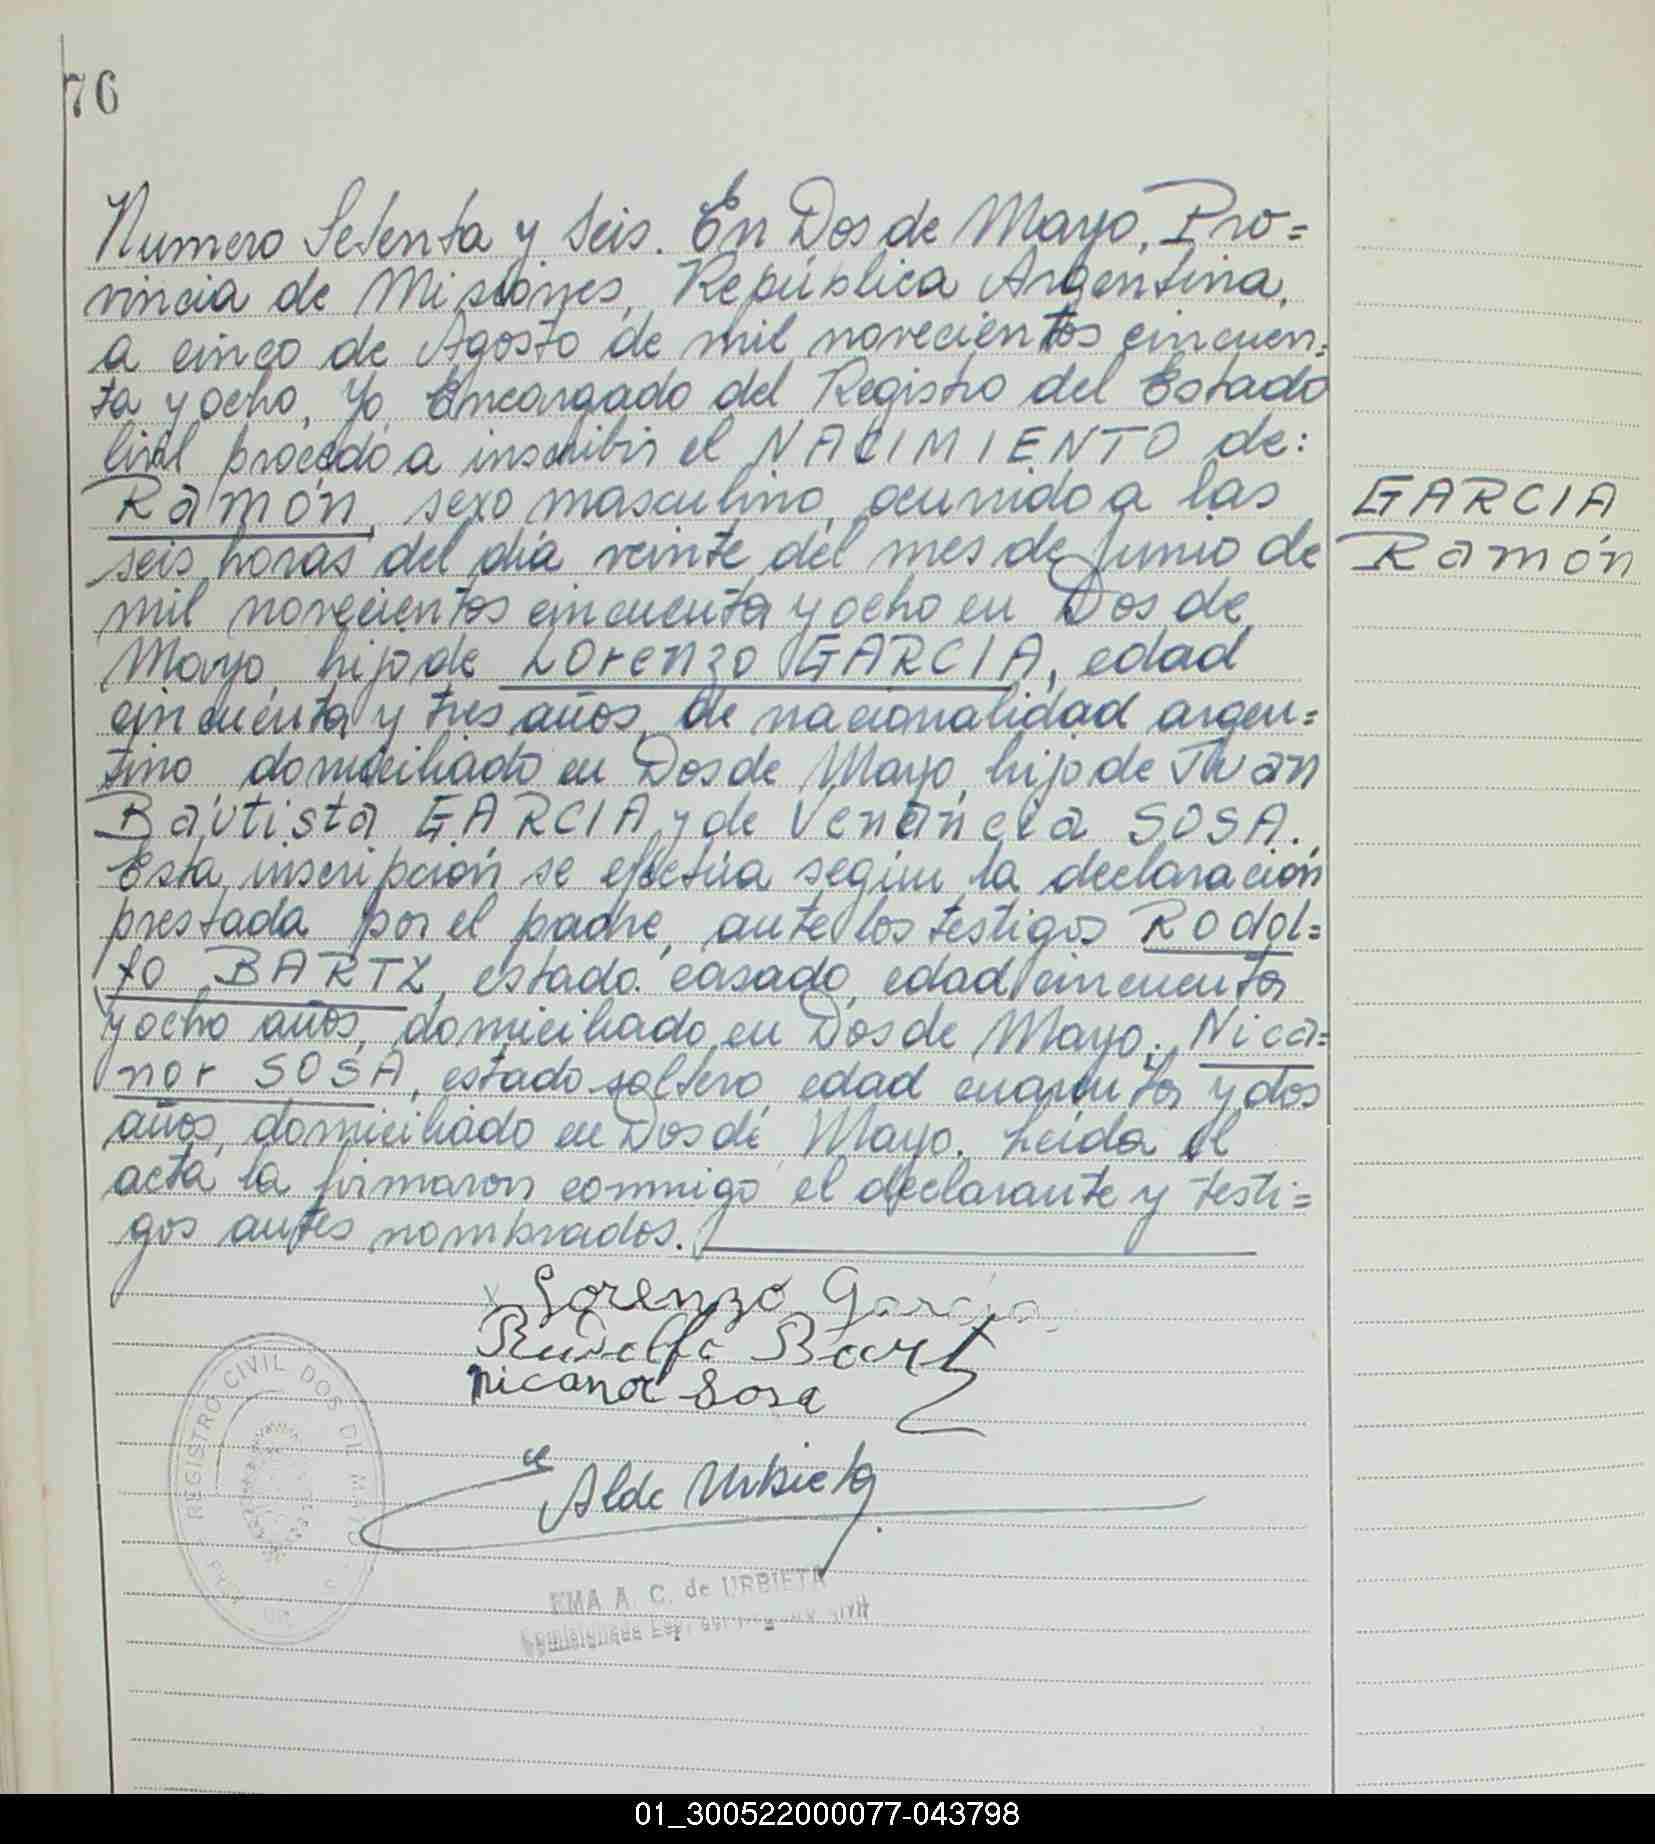 76
Numero Setenta y Seis. En Dos de Mayo, Pro=
vincia de Misiones, República Argentina,
a cinco de Agosto de mil novecientos cincuen=
ta y ocho, Yo, Encargado del Registro del Estado
Civil procedo a inscribir el NACIMIENTO de:
Ramón, sexo masculino, ocurrido a las
seis horas del día veinte del mes de Junio de
mil novecientos cincuenta y ocho en Dos de
Mayo, hijo de Lorenzo GARCIA, edad
cincuenta y tres años, de nacionalidad argen=
tino domiciliado en Dos de Mayo, hijo de Juan
Bautista GARCIA y de Venancia SOSA.
Esta inscripción se efectúa según la declaración
prestada por el padre, ante los testigos Rodol=
fo BARTZ, estado casado, edad cincuenta
y ocho años, domiciliado en Dos de Mayo; Nica=
nor SOSA, estado soltero, edad cuarenta y dos
años, domiciliado en Dos de Mayo. Leída el
acta la firmaron conmigo el declarante y testi=
gos antes nombrados.
GARCIA
Ramón
Lorenzo Garcia
Rudolfo Bartz
nicanor Sosa
Alde Urbieta
REGISTRO CIVIL DOS DE MAYO
EMA A. C. de URBIETA
01_300522000077-043798